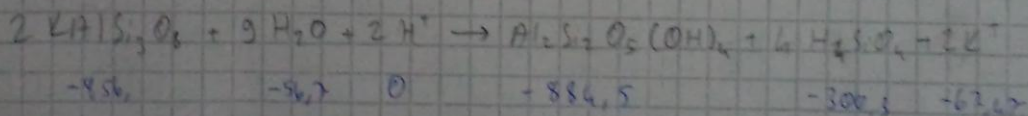 2 KAlSi₃O₈ + 9 H₂O + 2 H⁺ → Al₂Si₂O₅(OH)₄ + 4 H₄SiO₄ + 2 K⁺
-56,7 0 -884,5 -300,3